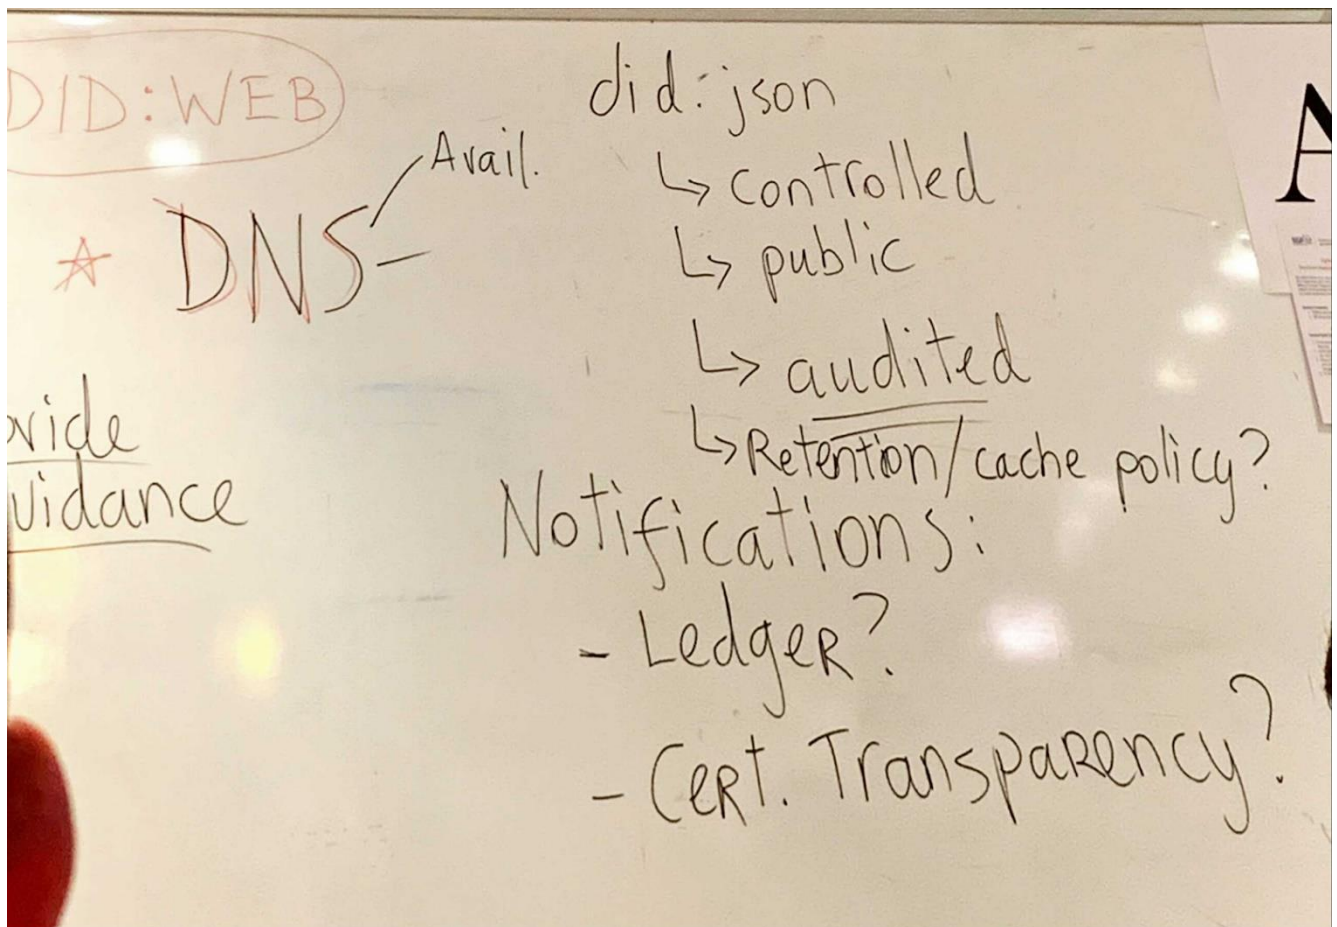 DID:WEB
* DNS -
Avail.
ovide
uidance
did:json
↳ controlled
↳ public
↳ audited
↳ Retention/cache policy?
Notifications:
- Ledger?
- Cert. Transparency?
A